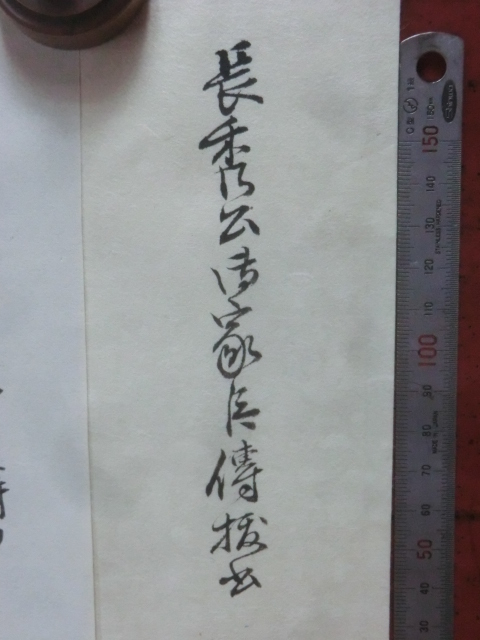 長秀公御家兵傳抜書
150
140
130
120
110
100
90
80
70
60
50
40
30